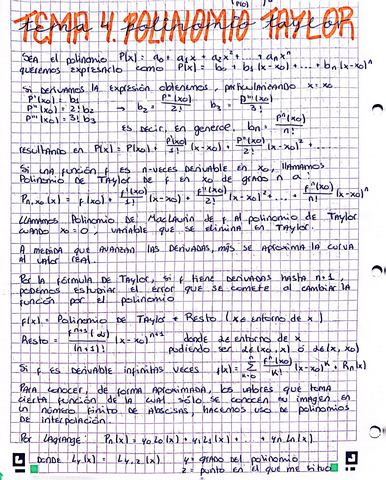 TEMA 4. POLINOMIO TAYLOR
tema 4 polinomio taylor
Sea el polinomio P(x) = a₀ + a₁x + a₂x² + ... + aₙxⁿ
queremos expresarlo como P(x) = b₀ + b₁(x-x₀) + ... + bₙ(x-x₀)ⁿ
Si derivamos la expresión obtenemos, particularizando x = x₀
P'(x₀) = b₁
P''(x₀) = 2! b₂ → b₂ = P''(x₀)/2! b₃ = P'''(x₀)/3!
P'''(x₀) = 3! b₃
es decir, en general, bₙ = Pⁿ(x₀)/n!
resultando en P(x) = P(x₀) + P'(x₀)/1! (x-x₀) + P''(x₀)/2! (x-x₀)² + ...
Si una función f es n-veces derivable en x₀, llamamos
Polinomio de Taylor de f en x₀ de grado n a:
Pₙ,x₀(x) = f(x₀) + f'(x₀)/1! (x-x₀) + f''(x₀)/2! (x-x₀)² + ... + fⁿ(x₀)/n! (x-x₀)ⁿ
Llamamos Polinomio de MacLaurin de f al polinomio de Taylor
cuando x₀ = 0, variable que se elimina en Taylor.
A medida que avanzan las derivadas, más se aproxima la curva
al valor real.
Por la fórmula de Taylor, si f tiene derivadas hasta n+1,
podemos estudiar el error que se comete al cambiar la
función por el polinomio
f(x) = Polinomio de Taylor + Resto (x₀ entorno de x)
Resto = fⁿ⁺¹(α)/(n+1)! (x-x₀)ⁿ⁺¹ donde α entorno de x
pudiendo ser α∈(x₀,x) ó α∈(x,x₀)
Si f es derivable infinitas veces f(x) = Σ fᵏ(x₀)/k! (x-x₀)ᵏ + Rₙ(x)
Para conocer, de forma aproximada, los valores que toma
cierta función de la cual sólo se conocen su imagen en
un número finito de abscisas, hacemos uso de polinomios
de interpolación.
Por Lagrange: Pₙ(x) = y₀L₀(x) + y₁L₁(x) + ... + yₙLₙ(x)
donde Ly(x) = Ly,z(x) y = grado del polinomio
z = punto en el que me situo